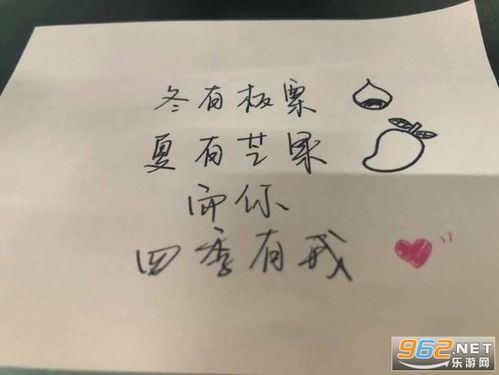 冬有板栗
夏有芒果
而你
四季有我
962.NET
乐游网